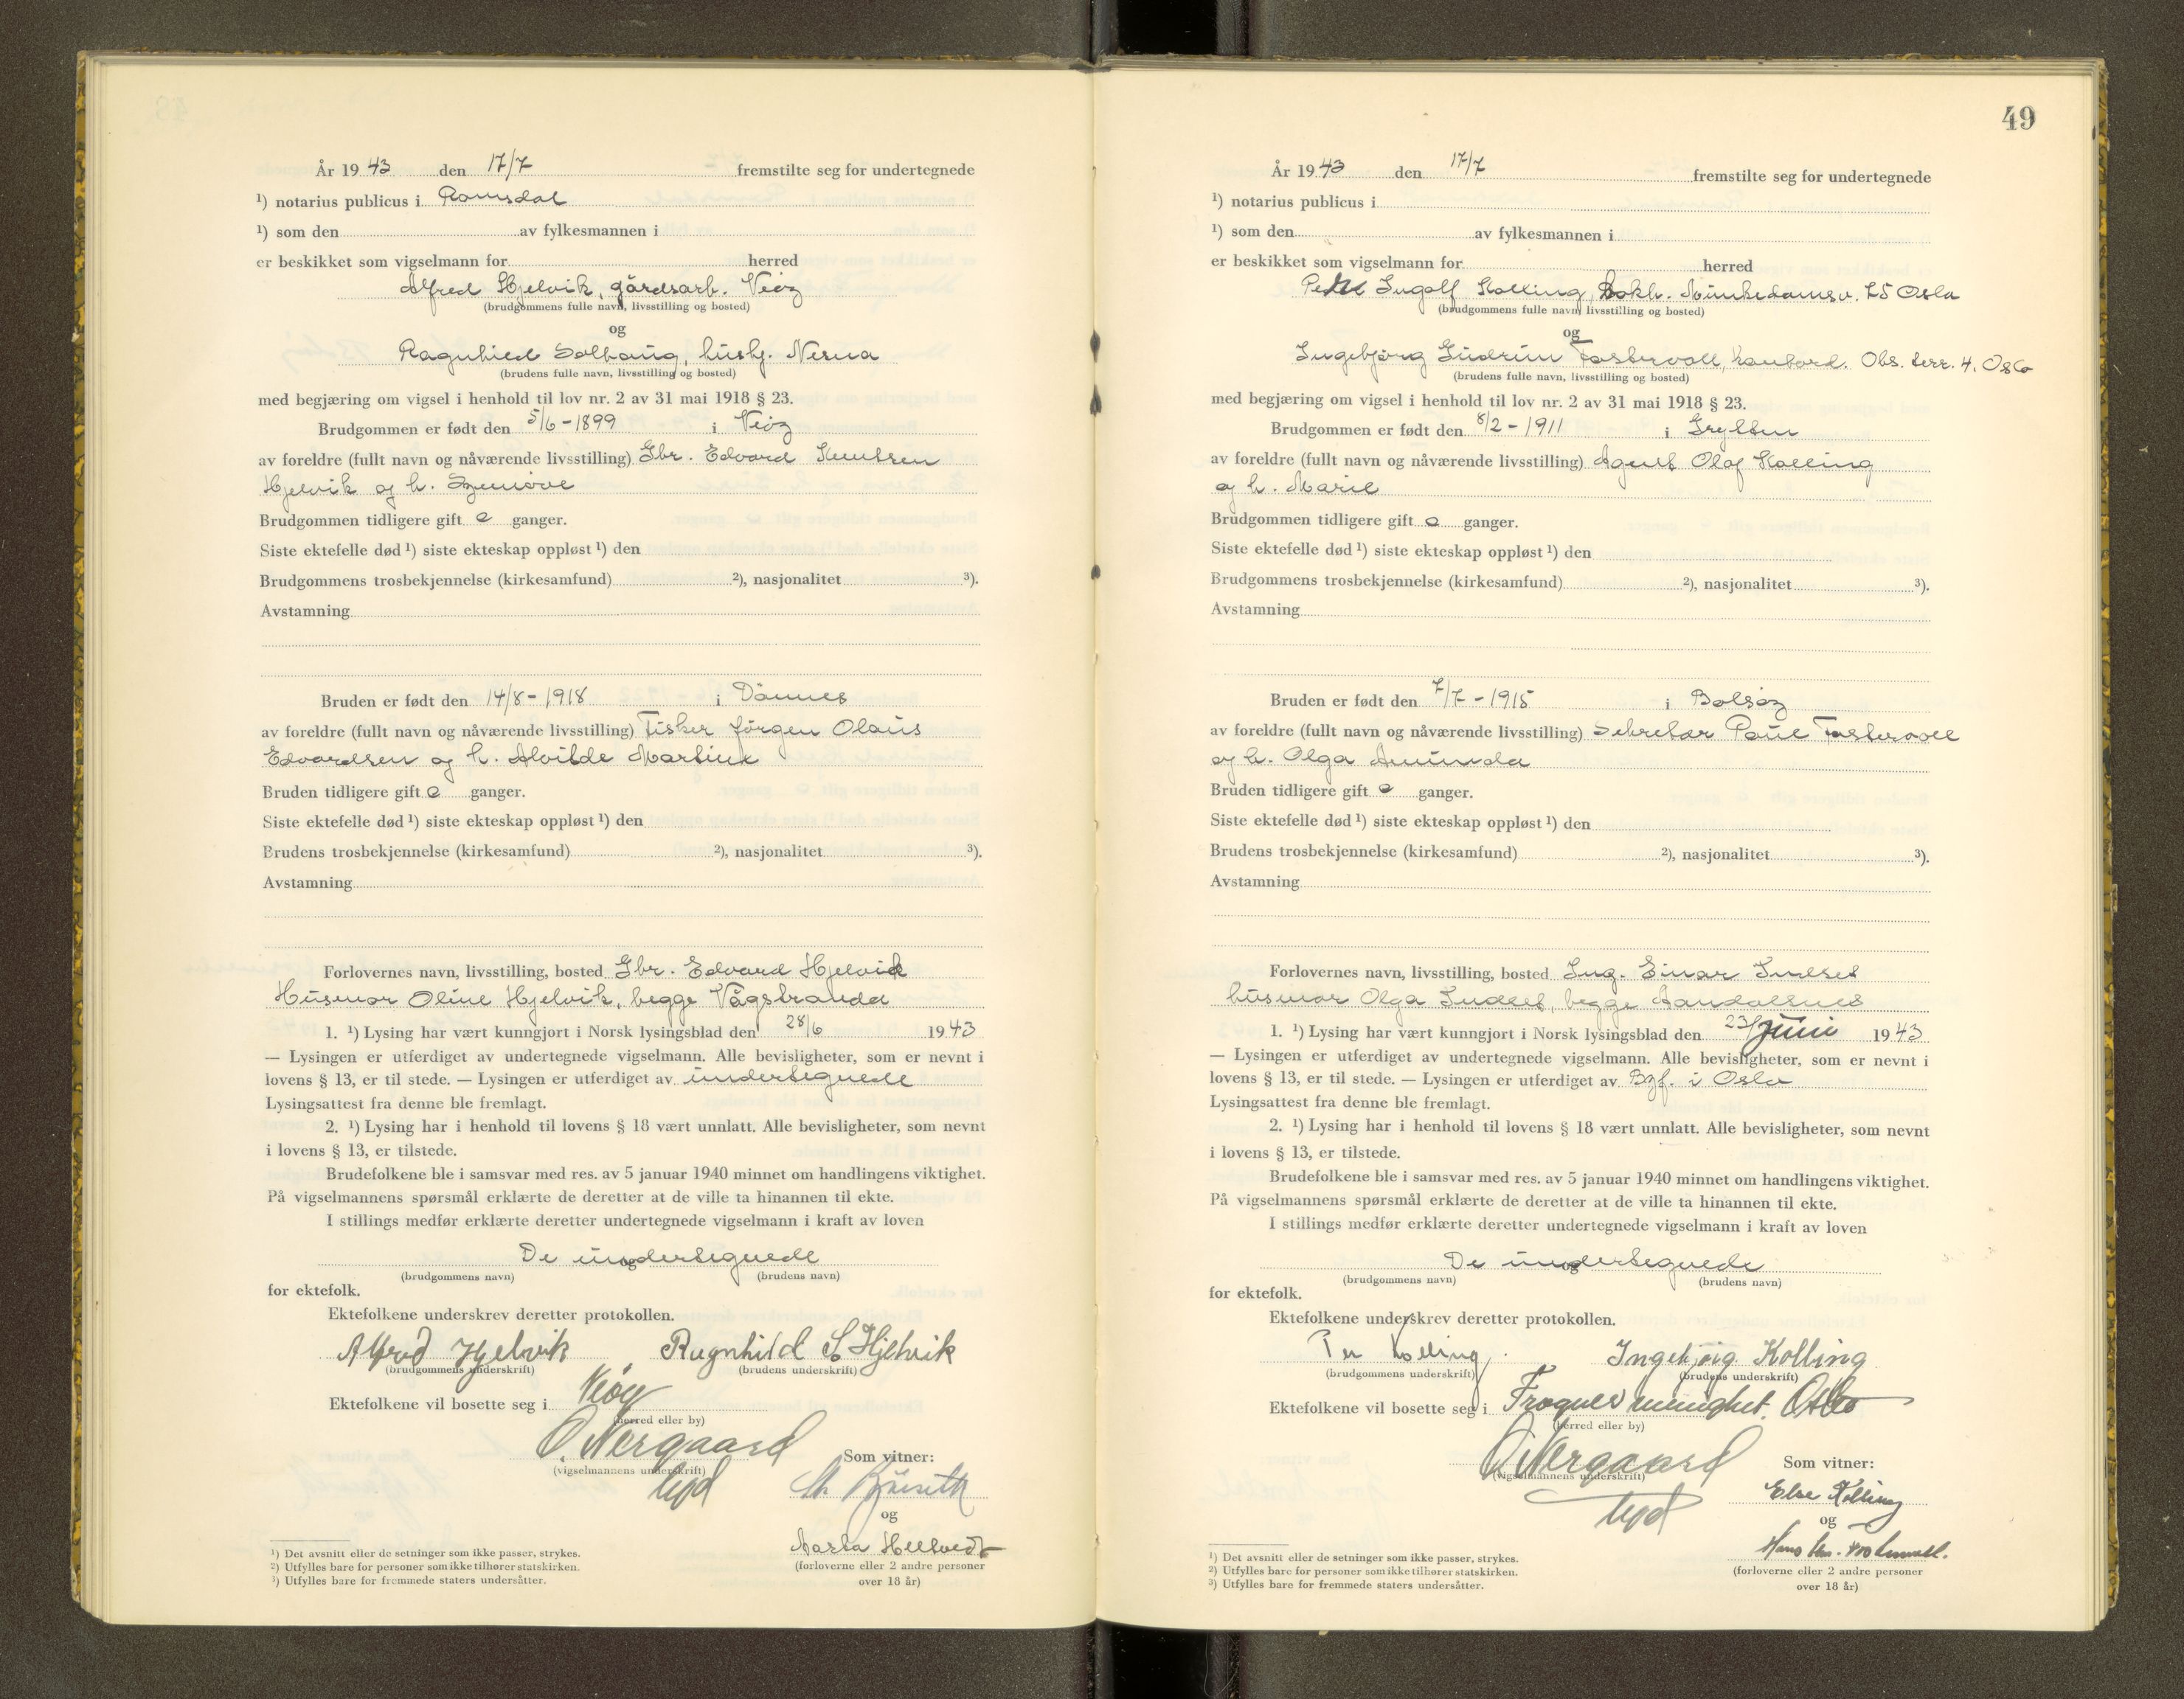 År 1943 den 17/7 fremstilte seg for undertegnede
¹) notarius publicus i Romsdal
¹) som den av fylkesmannen i
er beskikket som vigselmann for herred
Alfred Hjelvik, gårdsarb. Veøy
(brudgommens fulle navn, livsstilling og bosted)
og
Ragnhild Solhaug, hush. Nesna
(brudens fulle navn, livsstilling og bosted)
med begjæring om vigsel i henhold til lov nr. 2 av 31 mai 1918 § 23.
Brudgommen er født den 5/6-1899 i Veøy
av foreldre (fullt navn og nåværende livsstilling) Gbr. Edvard Knutsen
Hjelvik og h. Synnøve
Brudgommen tidligere gift 0 ganger.
Siste ektefelle død¹) siste ekteskap oppløst¹) den
Brudgommens trosbekjennelse (kirkesamfund) ²), nasjonalitet ³).
Avstamning
Bruden er født den 14/8-1918 i Dønnes
av foreldre (fullt navn og nåværende livsstilling) Fisker Jørgen Olaus
Edvardsen og h. Alvilde Martine
Bruden tidligere gift 0 ganger.
Siste ektefelle død¹) siste ekteskap oppløst¹) den
Brudens trosbekjennelse (kirkesamfund) ²), nasjonalitet ³).
Avstamning
Forlovernes navn, livsstilling, bosted Gbr. Edvard Hjelvik
Husmor Oline Hjelvik, begge Vågstranda
1. ¹) Lysing har vært kunngjort i Norsk lysingsblad den 28/6 1943
— Lysingen er utferdiget av undertegnede vigselmann. Alle bevisligheter, som er nevnt i
lovens § 13, er til stede. — Lysingen er utferdiget av undertegnede
Lysingsattest fra denne ble fremlagt.
2. ¹) Lysing har i henhold til lovens § 18 vært unnlatt. Alle bevisligheter, som nevnt
i lovens § 13, er tilstede.
Brudefolkene ble i samsvar med res. av 5 januar 1940 minnet om handlingens viktighet.
På vigselmannens spørsmål erklærte de deretter at de ville ta hinannen til ekte.
I stillings medfør erklærte deretter undertegnede vigselmann i kraft av loven
De undertegnede
og
(brudgommens navn) (brudens navn)
for ektefolk.
Ektefolkene underskrev deretter protokollen.
Alfred Hjelvik Ragnhild S. Hjelvik
(brudgommens underskrift) (brudens underskrift)
Ektefolkene vil bosette seg i Veøy
(herred eller by)
O. Nergaard
(vigselmannens underskrift)
Som vitner:
og
Marta
(forloverne eller 2 andre personer
over 18 år)
¹) Det avsnitt eller de setninger som ikke passer, strykes.
²) Utfylles bare for personer som ikke tilhører statskirken.
³) Utfylles bare for fremmede staters undersåtter.
49
År 1943 den 17/7 fremstilte seg for undertegnede
¹) notarius publicus i
¹) som den av fylkesmannen i
er beskikket som vigselmann for herred
Per Ingolf Kolling, bokh. Munkedamsv. 25 Oslo
(brudgommens fulle navn, livsstilling og bosted)
og
Ingebjørg Gudrun Fostervoll, kontord. Obs. terr. 4. Oslo
(brudens fulle navn, livsstilling og bosted)
med begjæring om vigsel i henhold til lov nr. 2 av 31 mai 1918 § 23.
Brudgommen er født den 8/2-1911 i Grytten
av foreldre (fullt navn og nåværende livsstilling) Agent Olaf Kolling
og h. Marie
Brudgommen tidligere gift 0 ganger.
Siste ektefelle død¹) siste ekteskap oppløst¹) den
Brudgommens trosbekjennelse (kirkesamfund) ²), nasjonalitet ³).
Avstamning
Bruden er født den 7/7-1915 i Bolsøy
av foreldre (fullt navn og nåværende livsstilling) Sekretær Paul Fostervoll
og h. Olga Amunda
Bruden tidligere gift 0 ganger.
Siste ektefelle død¹) siste ekteskap oppløst¹) den
Brudens trosbekjennelse (kirkesamfund) ²), nasjonalitet ³).
Avstamning
Forlovernes navn, livsstilling, bosted Ing. Einar Indset
husmor Olga Indset, begge Åndalsnes
1. ¹) Lysing har vært kunngjort i Norsk lysingsblad den 23/juni 1943
— Lysingen er utferdiget av undertegnede vigselmann. Alle bevisligheter, som er nevnt i
lovens § 13, er til stede. — Lysingen er utferdiget av Byf. i Oslo
Lysingsattest fra denne ble fremlagt.
2. ¹) Lysing har i henhold til lovens § 18 vært unnlatt. Alle bevisligheter, som nevnt
i lovens § 13, er tilstede.
Brudefolkene ble i samsvar med res. av 5 januar 1940 minnet om handlingens viktighet.
På vigselmannens spørsmål erklærte de deretter at de ville ta hinannen til ekte.
I stillings medfør erklærte deretter undertegnede vigselmann i kraft av loven
De undertegnede
og
(brudgommens navn) (brudens navn)
for ektefolk.
Ektefolkene underskrev deretter protokollen.
Per Kolling Ingebjørg Kolling
(brudgommens underskrift) (brudens underskrift)
Ektefolkene vil bosette seg i Frogner menighet. Oslo
(herred eller by)
O. Nergaard
(vigselmannens underskrift)
Som vitner:
Else Kolling
og
(forloverne eller 2 andre personer
over 18 år)
¹) Det avsnitt eller de setninger som ikke passer, strykes.
²) Utfylles bare for personer som ikke tilhører statskirken.
³) Utfylles bare for fremmede staters undersåtter.